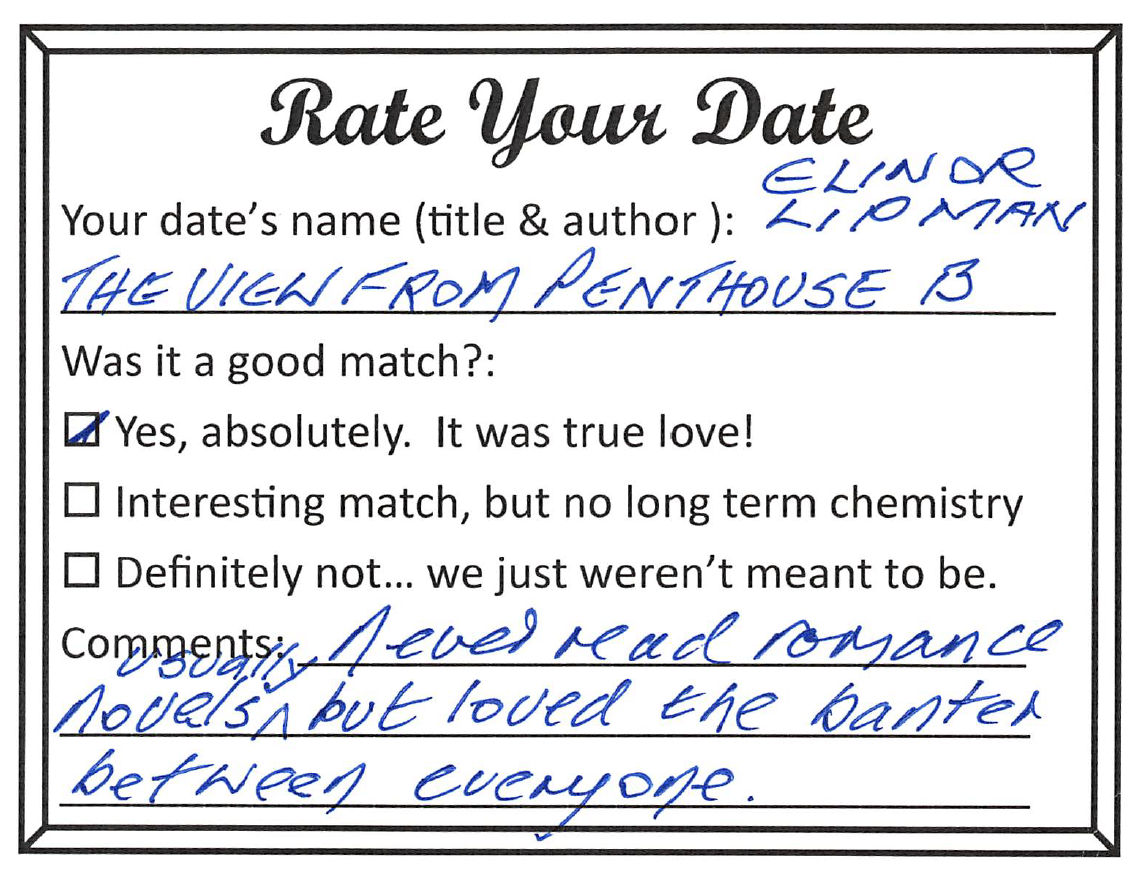 Rate Your Date
ELINOR
Your date's name (title & author ): LIPMAN
THE VIEW FROM PENTHOUSE B
Was it a good match?:
Yes, absolutely. It was true love!
Interesting match, but no long term chemistry
Definitely not... we just weren't meant to be.
Comments: Never read romance
usually
novels ^ but loved the banter
between everyone.